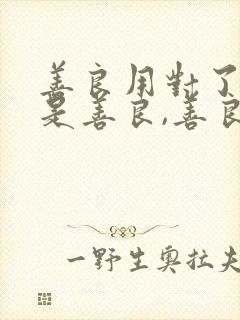 善良用對了
是善良,善良
一野生奥拉夫